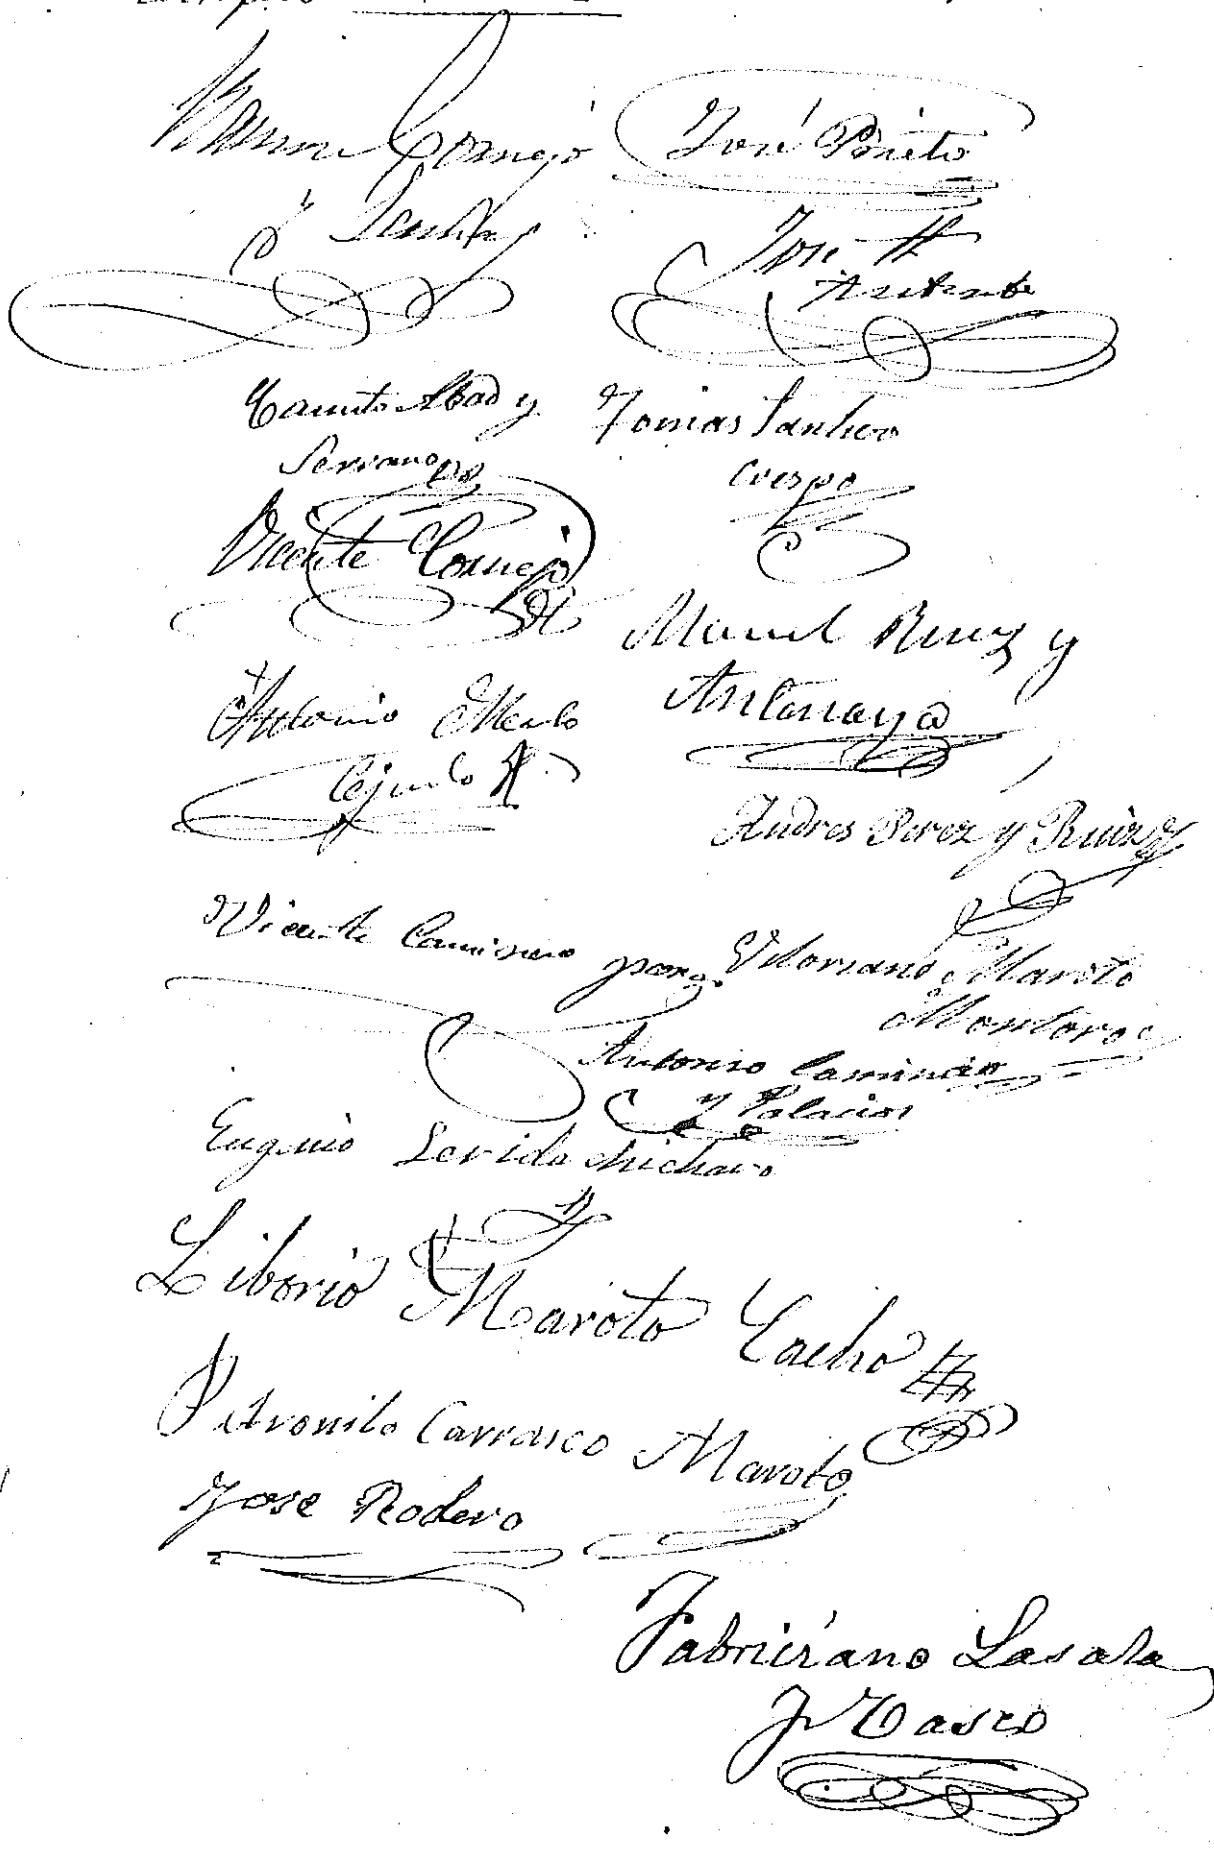 Cornejo
José Prieto
y
José H
Camilo Abad y
Serrano
Tomas Santero
Crespo
Vicente Cornejo
Manuel Ruiz y
Antonaya
Antonio Merlo
Andres Perez y Ruiz
Vicente Caminero
Vitoriano Maroto
Montoro
Antonio Caminero
y Palacios
Eugenio Lerida Chicharo
Liborio Maroto Cacho
Petronilo Carrasco Maroto
Jose Rodero
Fabriciano Lasala
y Tasco